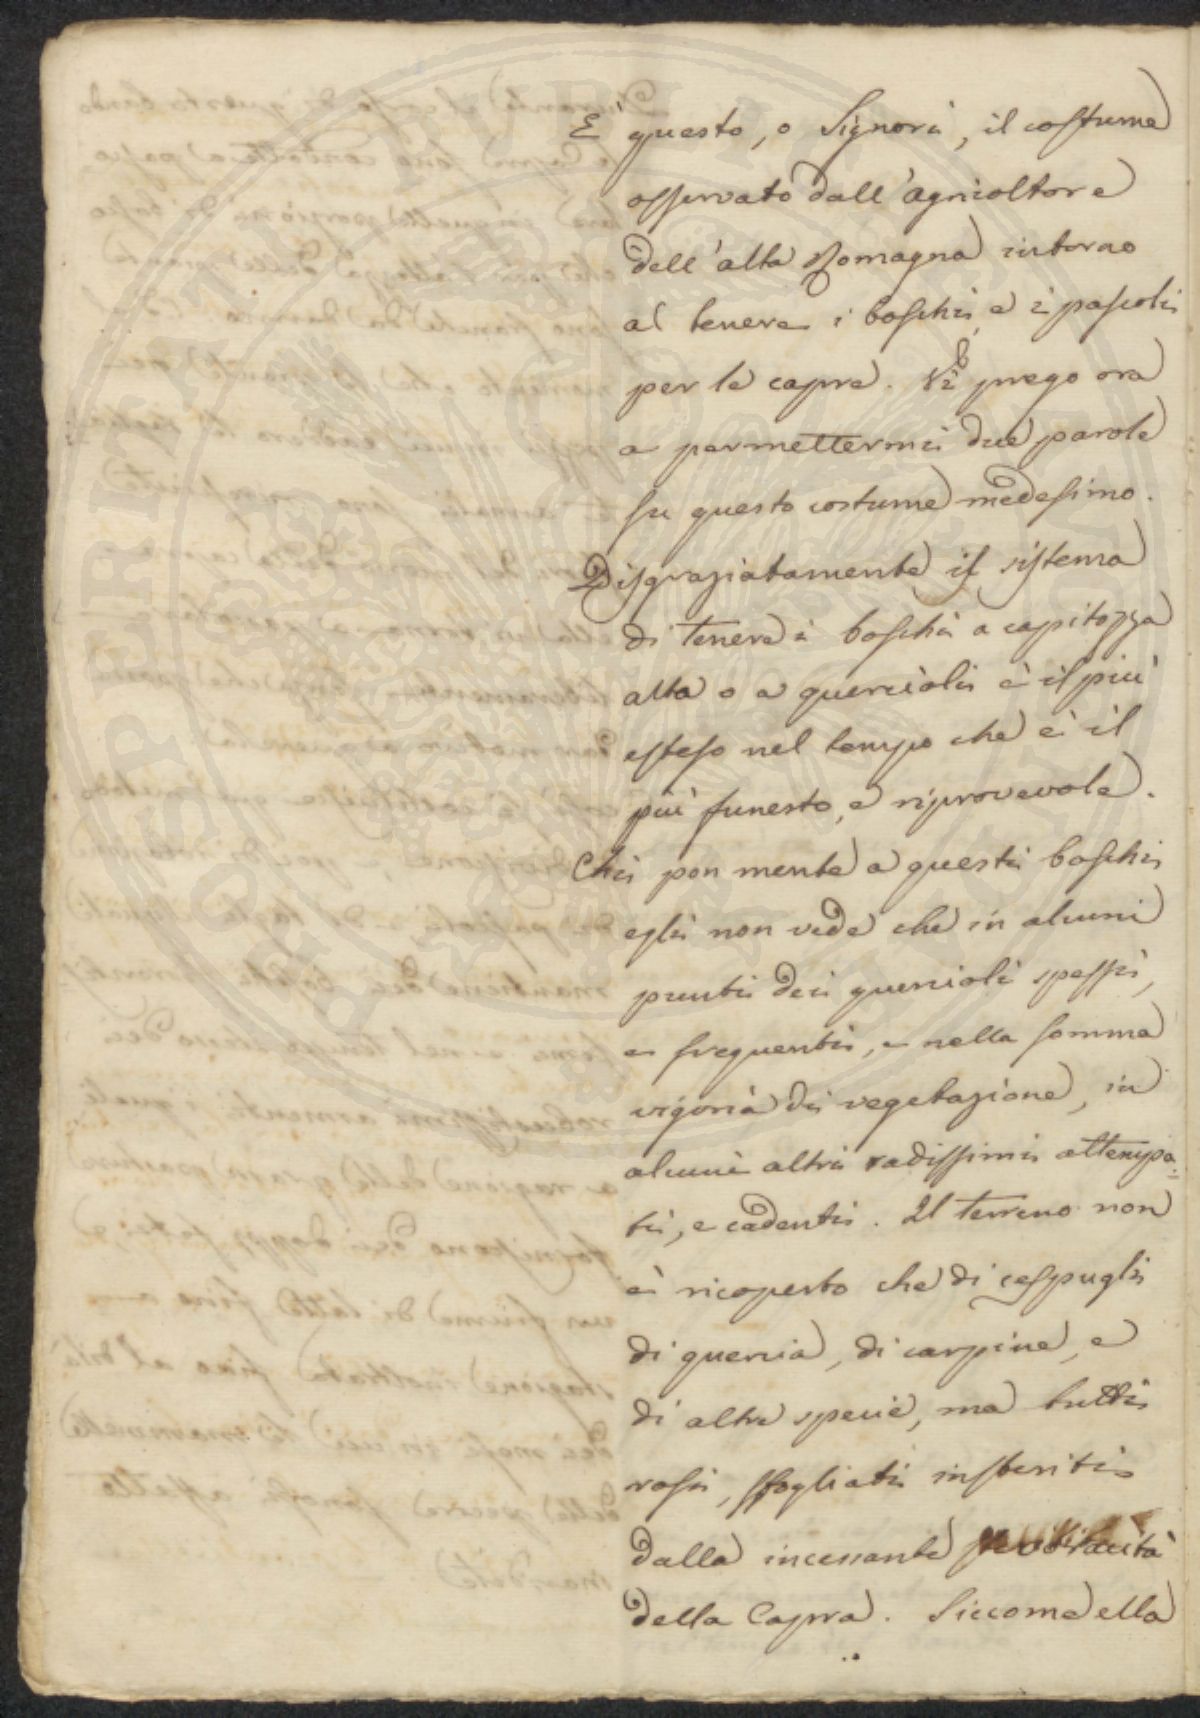 E' questo, o Signori, il costume
osservato dall'agricoltore
dell'alta Romagna intorno
al tenere i boschi, e i pascoli
per le capre. Vi prego ora
a permettermi due parole
su questo costume medesimo.
Disgraziatamente il sistema
di tenere i boschi a capitozza
alta o a quercioli è il più
esteso nel tempo che è il
più funesto, e riprovevole.
Chi pon mente a questi boschi
egli non vede che in alcuni
punti dei quercioli spessi,
e frequenti, e nella somma
vigoria di vegetazione, in
alcuni altri radissimi attempa-
ti, e cadenti. Il terreno non
è ricoperto che di cespugli
di quercia, di carpine, e
di altre specie, ma tutti
rosi, sfogliati insteriti
dalla incessante
della Capra. Siccome ella